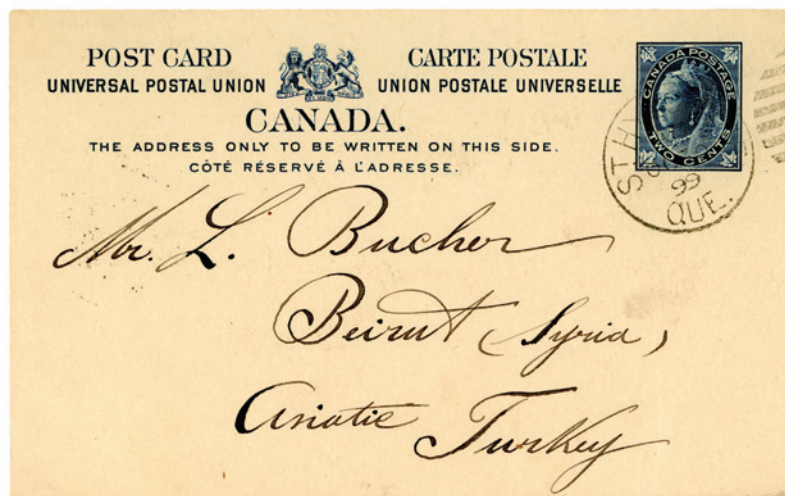 POST CARD CARTE POSTALE
UNIVERSAL POSTAL UNION UNION POSTALE UNIVERSELLE
CANADA.
THE ADDRESS ONLY TO BE WRITTEN ON THIS SIDE.
CÔTÉ RÉSERVÉ À L'ADRESSE.
CANADA POSTAGE
TWO CENTS
ST HY
99
QUE.
Mr. L. Bucher
Beirut (Syria)
Asiatic Turkey